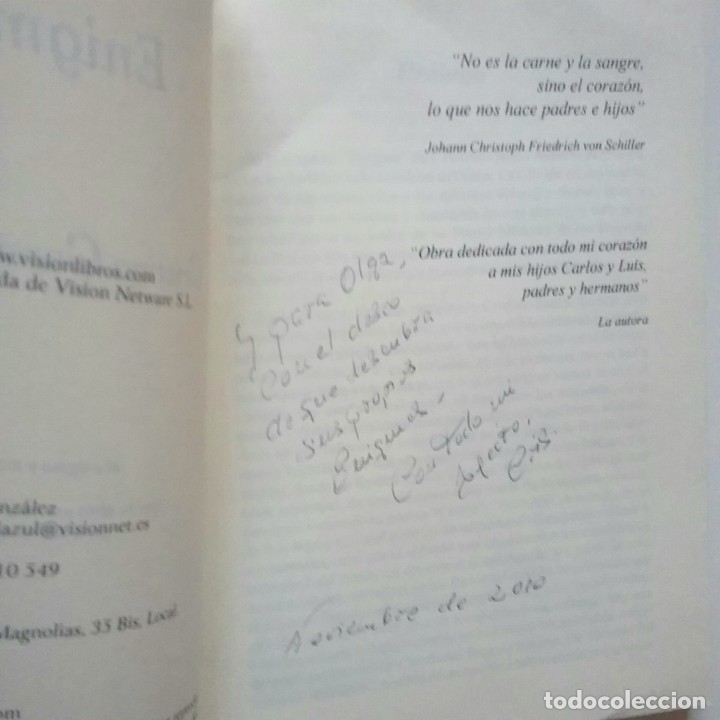 Enigm
w.visionlibros.com
da de Vision Netware S.L
nzález
lazul@visionnet.es
10 549
Magnolias, 35 Bis, Local
om
"No es la carne y la sangre,
sino el corazón,
lo que nos hace padres e hijos"
Johann Christoph Friedrich von Schiller
"Obra dedicada con todo mi corazón
a mis hijos Carlos y Luis,
padres y hermanos"
La autora
Y para Olga,
Con el deseo
de que descubra
sus propios
Enigmas.
Con todo mi
afecto,
Cris.
Noviembre de 2010
todocoleccion